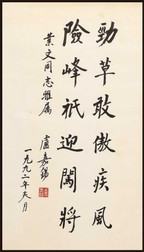 勁草敢傲疾風
險峰祇迎闖將
業文同志雅屬
盧嘉錫
一九九二年八月